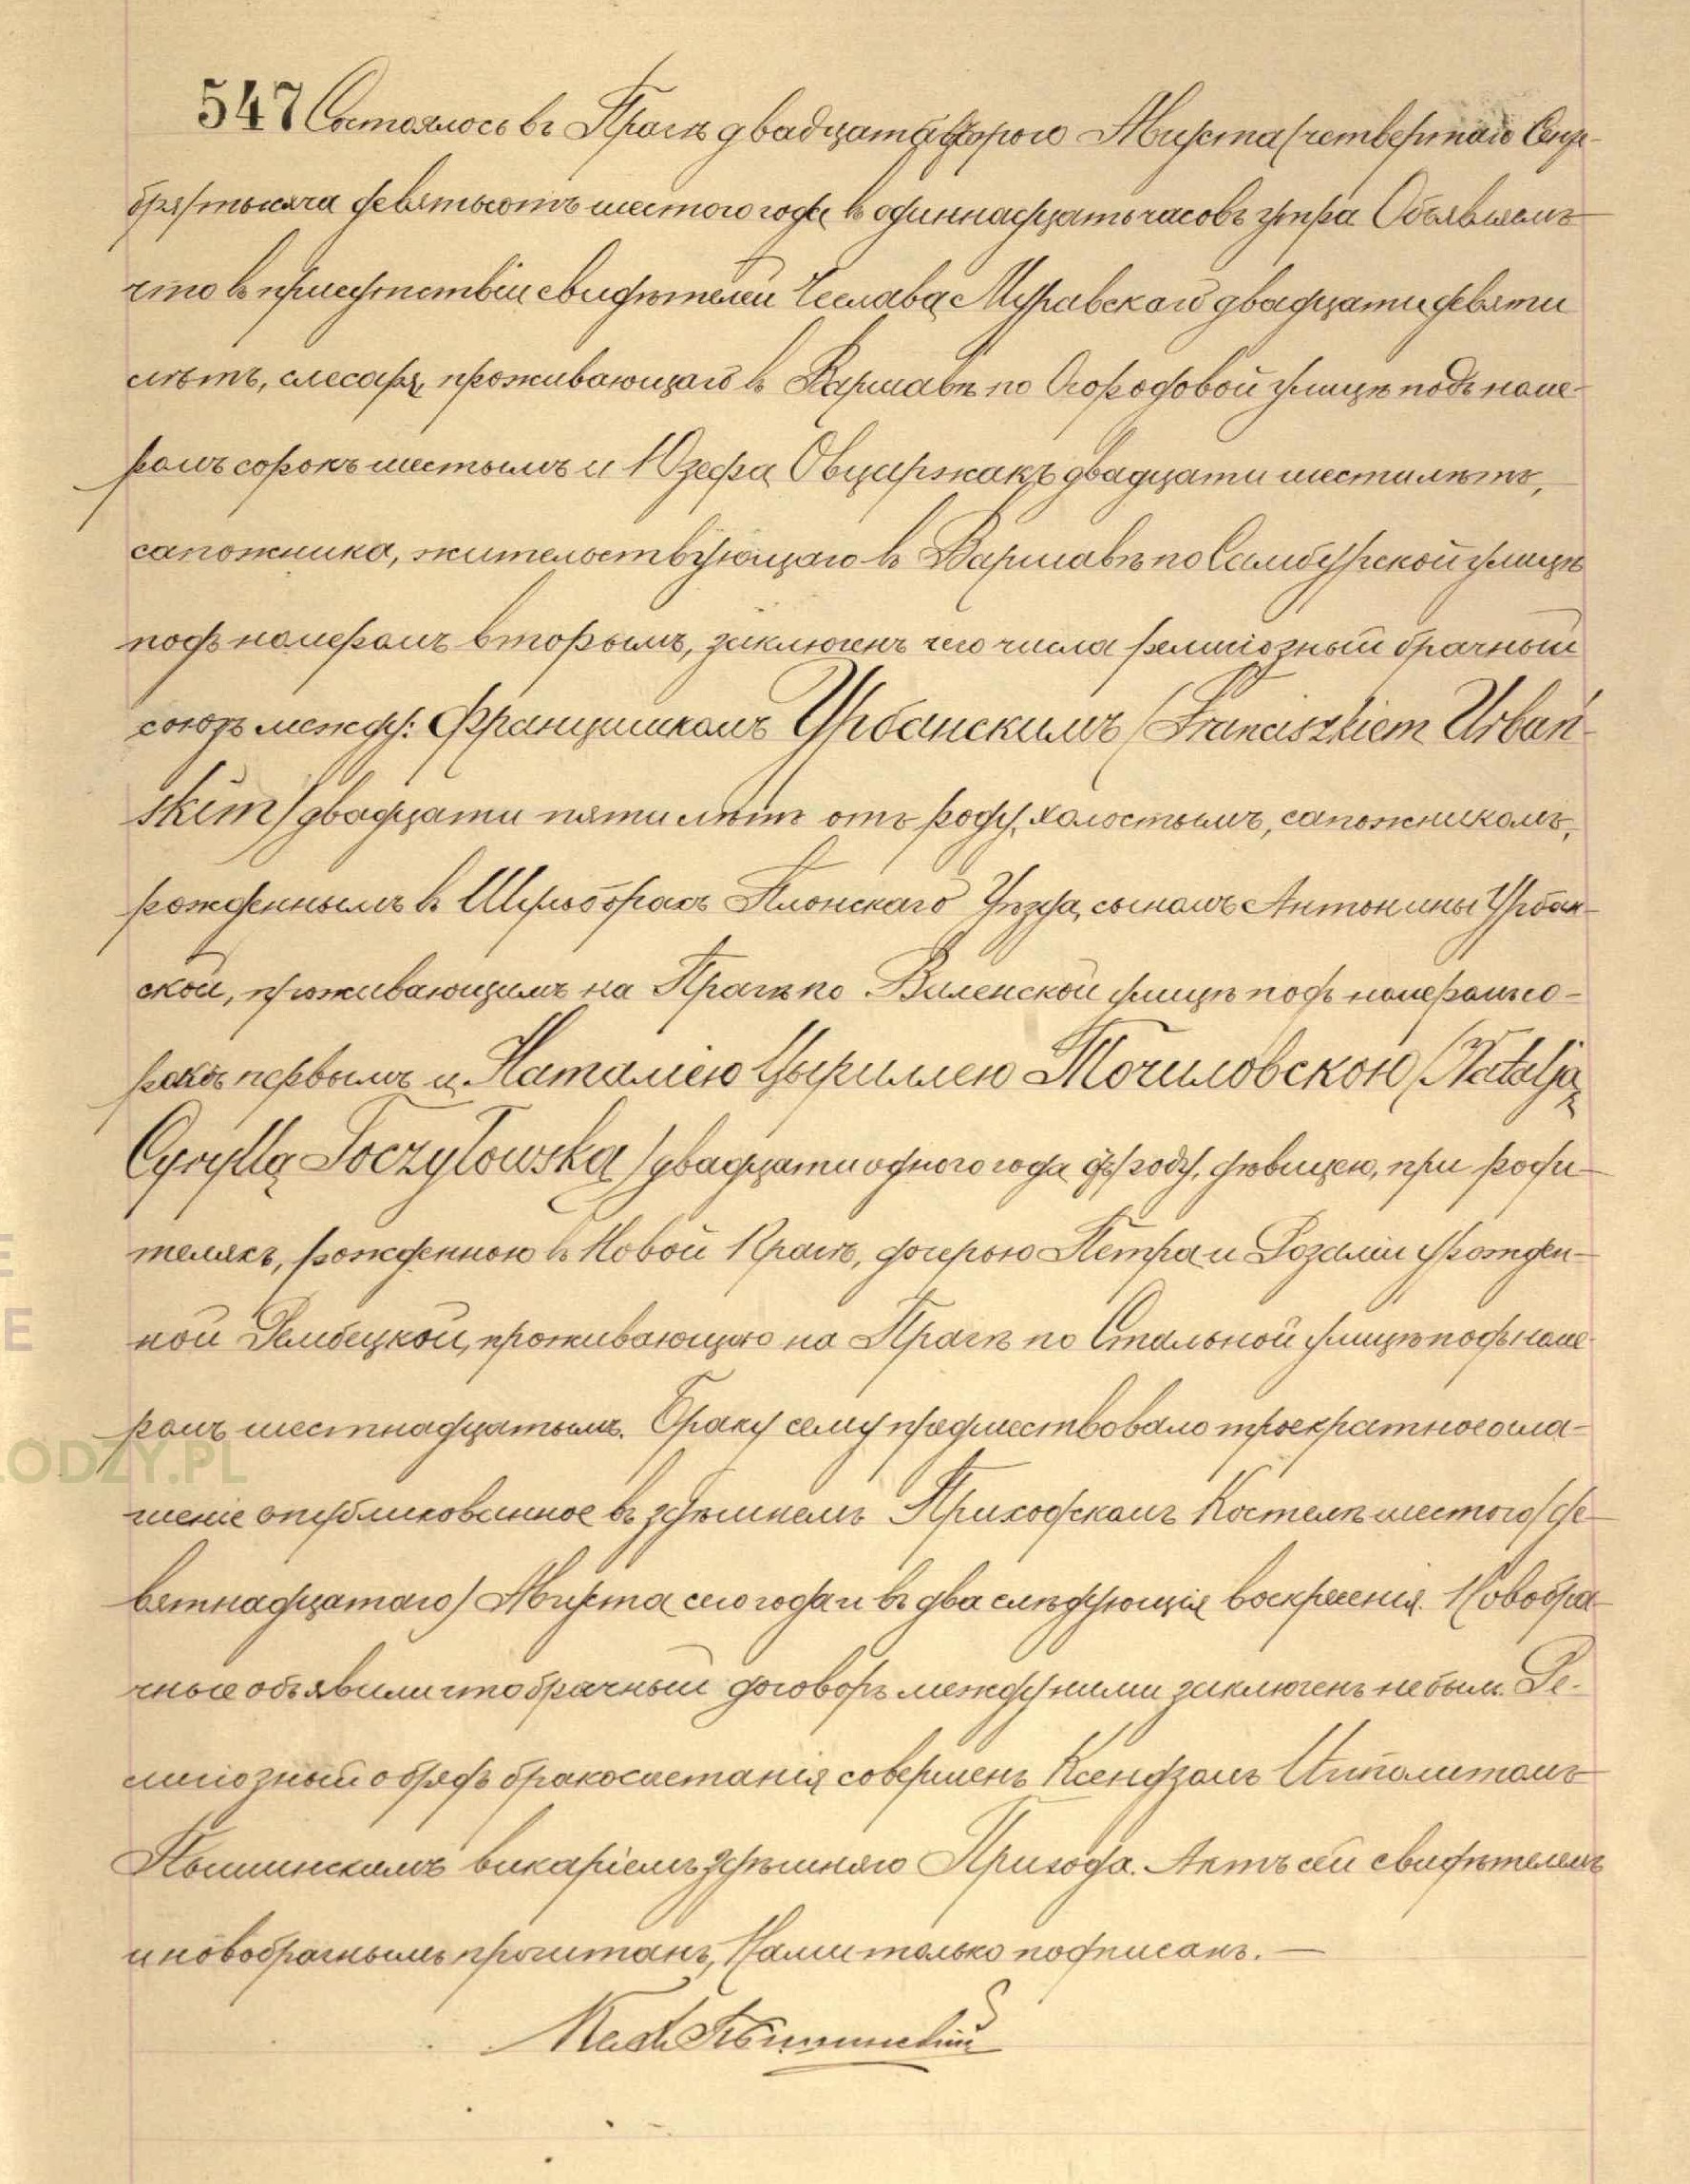 547 Состоялось въ Прагѣ двадцать второго Августа (четвертаго Сентя-
бря) тысяча девятьсотъ шестого года въ одиннадцать часовъ утра Объявляемъ
что въ присутствіи свидѣтелей Чеслава Муравскаго двадцати девяти
лѣтъ, слесаря, проживающаго въ Варшавѣ по Огородовой улицѣ подъ номе-
ромъ сорокъ шестымъ и Юзефа Овцаржакъ двадцати шести лѣтъ,
сапожника, жительствующаго въ Варшавѣ по Самбурской улицѣ
подъ номеромъ вторымъ, заключенъ сего числа религіозный брачный
союзъ между: Францишкомъ Урбанскимъ (Franciszkiem Urbań-
skim) двадцати пяти лѣтъ отъ роду, холостымъ, сапожникомъ,
рожденнымъ въ Плонскаго Уѣзда, сыномъ Антонины Урбан-
ской, проживающимъ на Прагѣ по Виленской улицѣ подъ номеромъ со-
рокъ первымъ и Наталіею Цыриллею Точиловскою (Natalją
Cyryllą Toczyłowską) двадцати одного года отъ роду, дѣвицею, при роди-
теляхъ, рожденною въ Новой Прагѣ, дочерью Петра и Розаліи урожден-
ной Рембецкой, проживающею на Прагѣ по Стальной улицѣ подъ номе-
ромъ шестнадцатымъ. Браку сему предшествовало троекратное огла-
шеніе опубликованное въ здѣшнемъ Приходскомъ Костелѣ шестого (де-
вятнадцатаго) Августа сего года и въ два слѣдующія воскресенія. Новобра-
чные объявили что брачный договоръ между ними заключенъ не былъ. Ре-
лигіозный обрядъ бракосочетанія совершенъ Ксендзомъ Ипполитомъ
Пышинскимъ викаріемъ здѣшняго Прихода. Актъ сей свидѣтелямъ
и новобрачнымъ прочитанъ, Нами только подписанъ. —